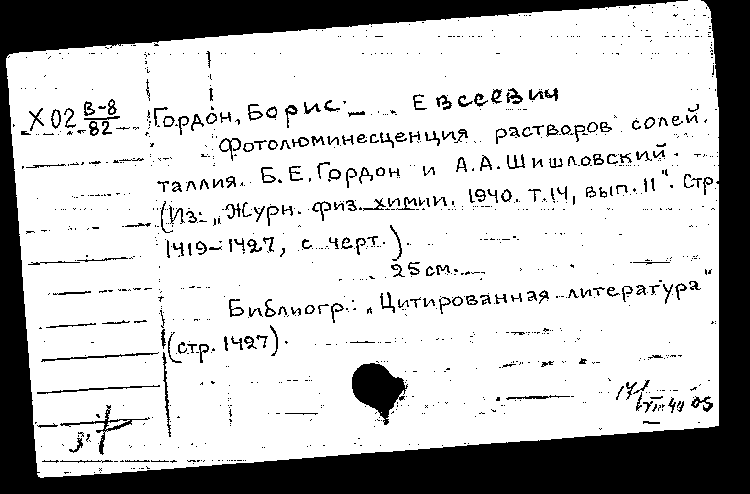 Х02 В-8/82
Гордон, Борис Евсеевич
Фотолюминесценция растворов солей
таллия. Б.Е.Гордон и А.А.Шишловский.
(Из: „Журн. физ. химии. 1940. Т.14, вып. 11". Стр.
1419-1427, с черт.).
25 см.
Библиогр.: „Цитированная литература"
(стр. 1427).